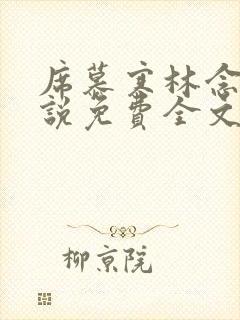 席慕寒林念
說免費全文
柳京院